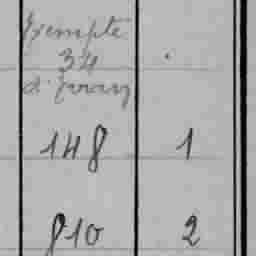 Exempte
34
148 1
810 2